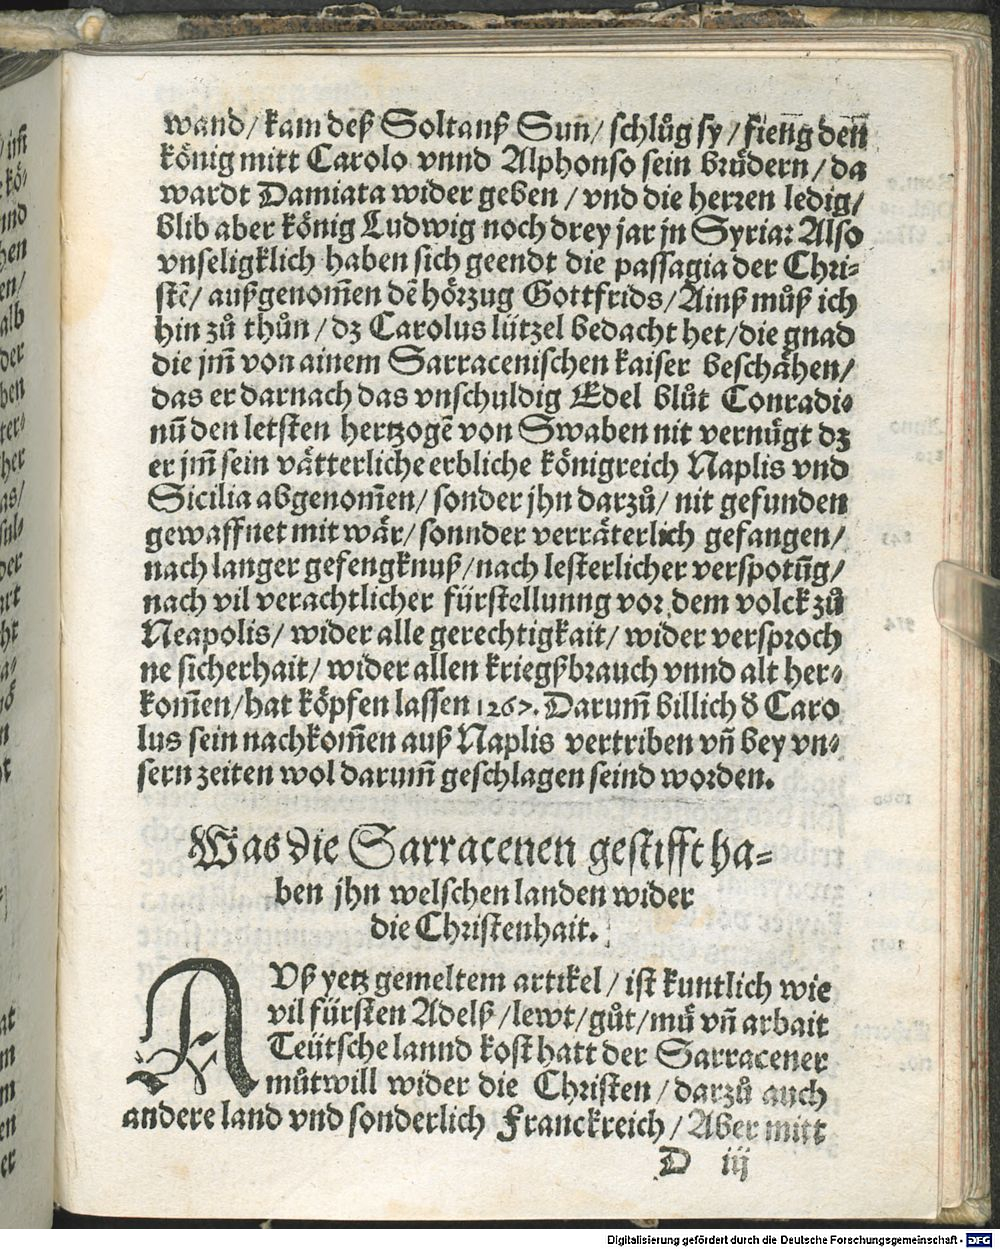 wand/ kam deß Soltanß Sun̄/ schlůg sy/ fieng den
könig mitt Carolo vnnd Alphonso sein brüdern/ da
wardt Damiata wider geben/ vnd die herren ledig/
blib aber könig Ludwig noch drey jar jn Syria: Also
vnseligklich haben sich geendt die passagia der Chri⸗
stē/ außgenom̄en dē hörzug Gottfrids/ Ainß můß ich
hin zů thůn/ dz Carolus lützel bedacht het/ die gnad
die jm̄ von ainem Sarracenischen kaiser beschähen/
das er darnach das vnschuldig Edel blůt Conradi⸗
nū den letsten hertzogē von Swaben nit vernügt dz
er jm̄ sein vätterliche erbliche königreich Naplis vnd
Sicilia abgenom̄en/ sonder jhn darzů/ nit gefunden
gewaffnet mit wär/ sonnder verräterlich gefangen/
nach langer gefengknuß/ nach lesterlicher verspotūg/
nach vil verachtlicher fürstellunng vor dem volck zů
Neapolis/ wider alle gerechtigkait/ wider versproch
ne sicherhait/ wider allen kriegßbrauch vnnd alt her⸗
kom̄en/ hat köpfen lassen 1267. Darum̄ billich d̕ Caro
lus sein nachkom̄en auß Naplis vertriben vn̄ bey vn⸗
sern zeiten wol darum̄ geschlagen seind worden.
Was die Sarracenen gestifft ha⸗
ben jhn welschen landen wider
die Christenhait.
AVß yetz gemeltem artikel/ ist kuntlich wie
vil fürsten Adelß/ lewt/ gůt/ mü vn̄ arbait
Teütsche lannd kost hatt der Sarracener
můtwill wider die Christen/ darzů auch
andere land vnd sonderlich Franckreich/ Aber mitt
D iij
Digitalisierung gefördert durch die Deutsche Forschungsgemeinschaft - DFG